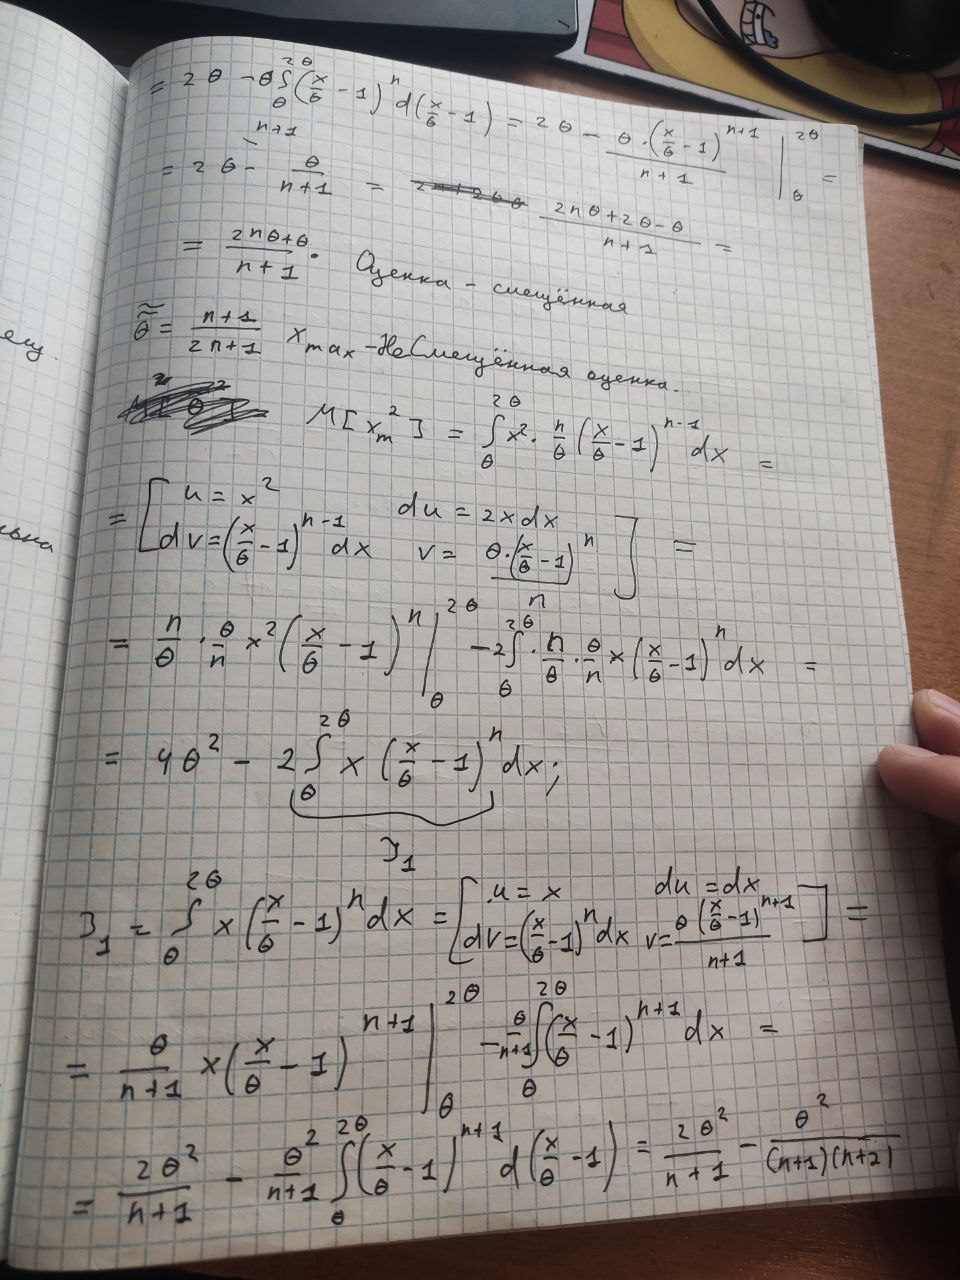 = 2θ - θ∫_θ^{2θ} (x/θ - 1)^n d(x/θ - 1) = 2θ - θ·(x/θ - 1)^{n+1}/(n+1) |_θ^{2θ} =
= 2θ - θ/(n+1) = (2nθ+2θ-θ)/(n+1) =
= (2nθ+θ)/(n+1). Оценка - смещённая
θ̃̃ = (n+1)/(2n+1) x_max - Несмещённая оценка.
M[x_m^2] = ∫_θ^{2θ} x^2 · n/θ (x/θ - 1)^{n-1} dx =
= [u = x^2 du = 2x dx
dv = (x/θ - 1)^{n-1} dx v = θ·(x/θ - 1)^n/n] =
= n/θ · θ/n x^2 (x/θ - 1)^n |_θ^{2θ} - 2∫_θ^{2θ} · n/θ · θ/n x (x/θ - 1)^n dx =
= 4θ^2 - 2∫_θ^{2θ} x (x/θ - 1)^n dx;
J_1
J_1 = ∫_θ^{2θ} x (x/θ - 1)^n dx = [u = x du = dx
dv = (x/θ - 1)^n dx v = θ(x/θ - 1)^{n+1}/(n+1)] =
= θ/(n+1) x (x/θ - 1)^{n+1} |_θ^{2θ} - θ/(n+1) ∫_θ^{2θ} (x/θ - 1)^{n+1} dx =
= 2θ^2/(n+1) - θ^2/(n+1) ∫_θ^{2θ} (x/θ - 1)^{n+1} d(x/θ - 1) = 2θ^2/(n+1) - θ^2/((n+1)(n+2))